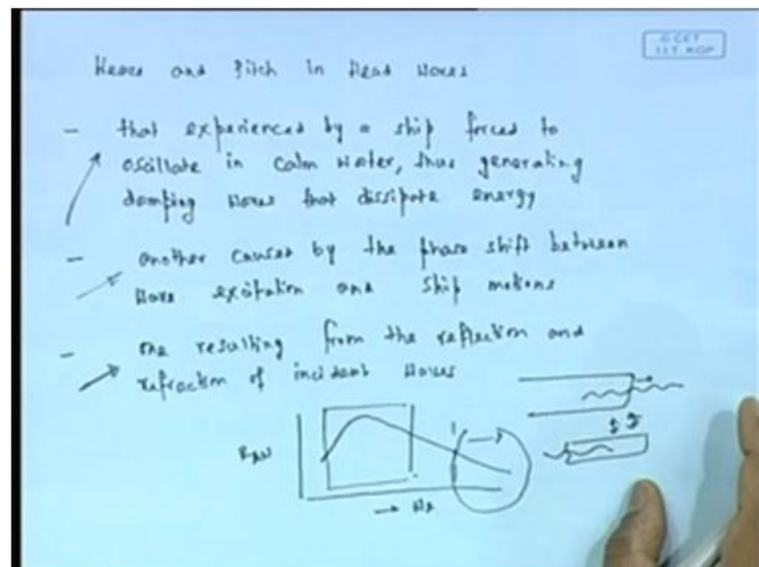 © CET
I.I.T. KGP
Heave and Pitch in Head Waves
- that experienced by a ship forced to
oscillate in calm water, thus generating
damping waves that dissipate energy
- another caused by the phase shift between
wave excitation and ship motions
- one resulting from the reflection and
refraction of incident waves
RAW